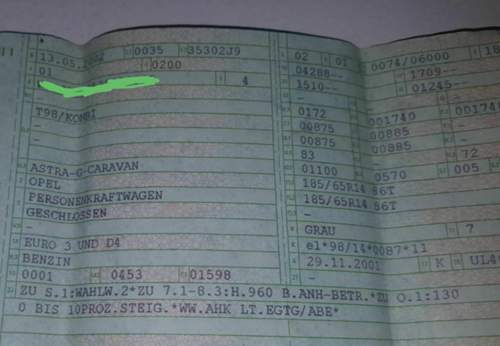 13.05.2002 0035 35302J9
01 0200
4
-
T98/KOMBI
-
-
ASTRA-G-CARAVAN
OPEL
PERSONENKRAFTWAGEN
GESCHLOSSEN
-
EURO 3 UND D4
BENZIN
0001 0453 01598
02 01 0074/06000
04288- 1709-
1510- 01245-
-
0172 001740
00875 00885
00875 00885
83 72
01100 0570 005
185/65R14 86T
185/65R14 86T
-
GRAU 7
e1*98/14*0087*11
29.11.2001 K
-
ZU S.1:WAHLW.2*ZU 7.1-8.3:H.960 B.ANH-BETR.*ZU O.1:130
0 BIS 10PROZ.STEIG.*WW.AHK LT.EGTG/ABE*